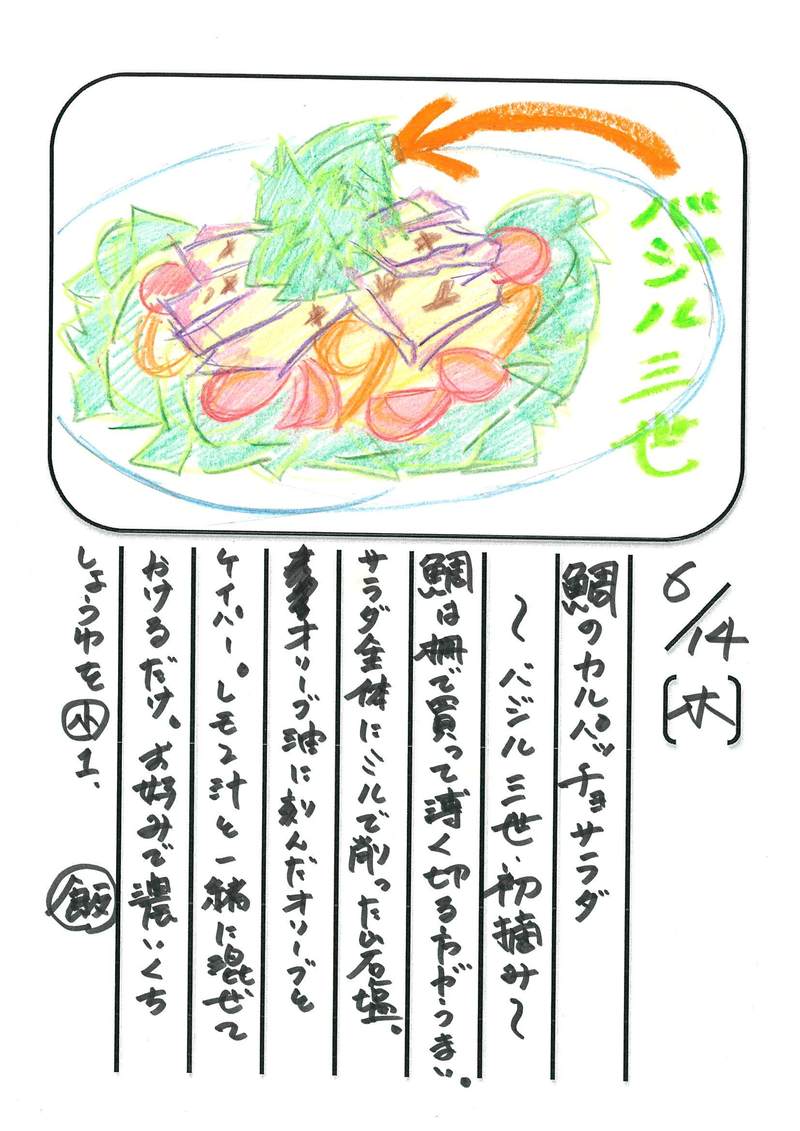 バジル三世
6/14〔木〕
鯛のカルパッチョサラダ
〜バジル三世・初摘み〜
鯛は柵で買って薄く切る方がうまい。
サラダ全体にミルで削った岩塩。
オリーブ油に刻んだオリーブと
ケイパー。レモン汁と一緒に混ぜて
おけるだけ。お好みで濃いくち
しょうゆを㊙1.
飯